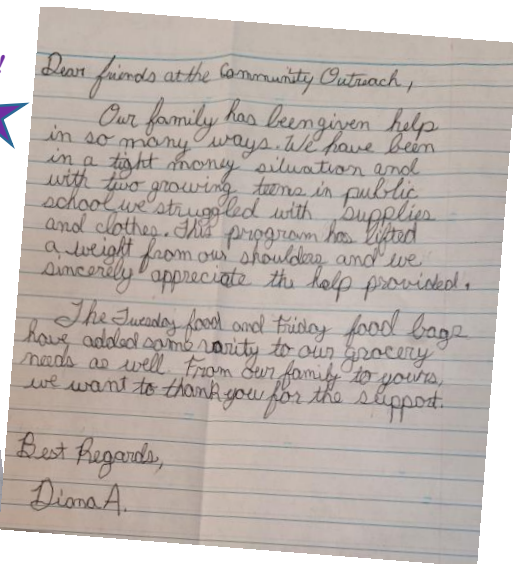 !
Dear friends at the Community Outreach,
Our family has been given help
in so many ways. We have been
in a tight money situation and
with two growing teens in public
school we struggled with supplies
and clothes. This program has lifted
a weight from our shoulders and we
sincerely appreciate the help provided.
The Tuesday food and Friday food bags
have added some varity to our grocery
needs as well. From our family to yours,
we want to thank you for the support.
Best Regards,
Diana A.